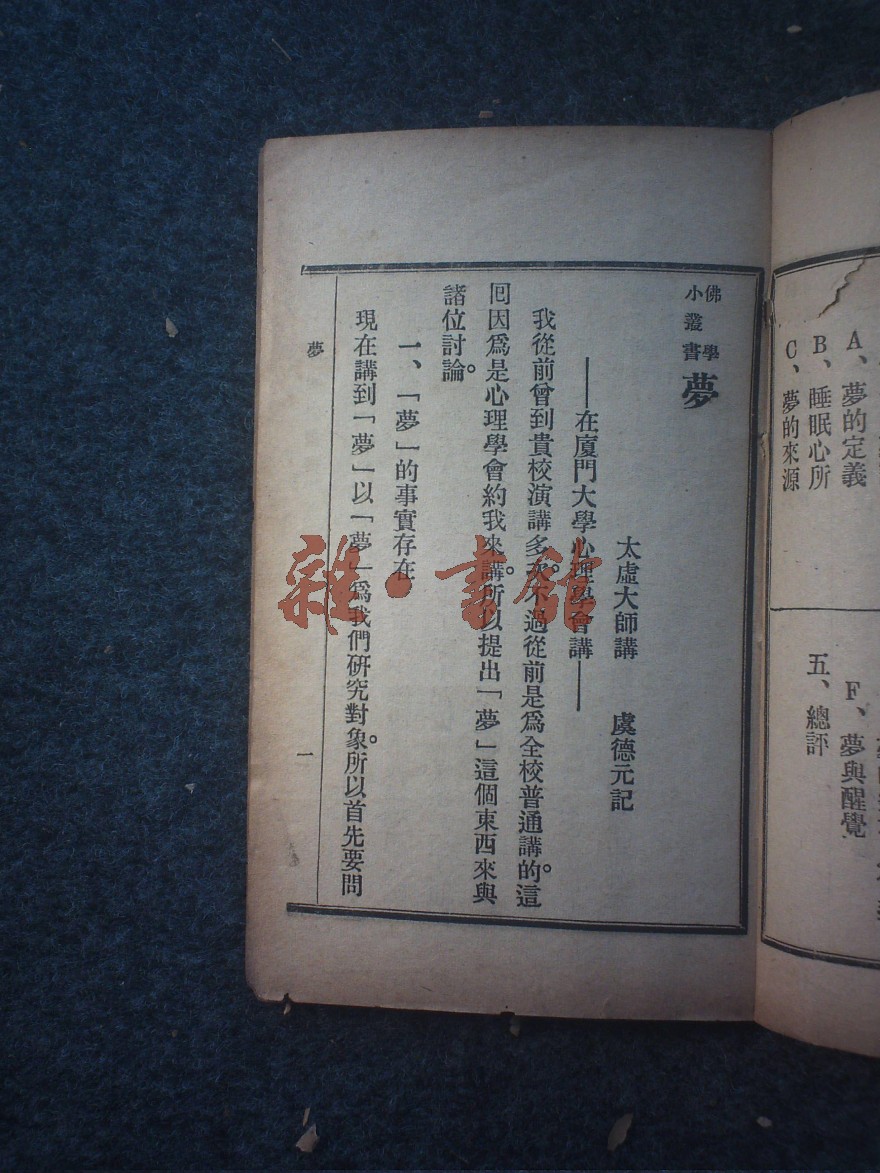 A、夢的定義
B、睡眠心所
C、夢的來源
F、夢與醒覺
五、總評
佛學
小叢書
夢
太虛大師講　虞德元記
——在廈門大學心理學會講——
我從前曾到貴校演講多次。不過從前是爲全校普通講的。這
囘因爲是心理學會約我來講。所以提出「夢」這個東西來與
諸位討論。
一、「夢」的事實存在
現在講到「夢」以「夢」爲我們研究對象。所以首先要問
夢
一
雜·書館